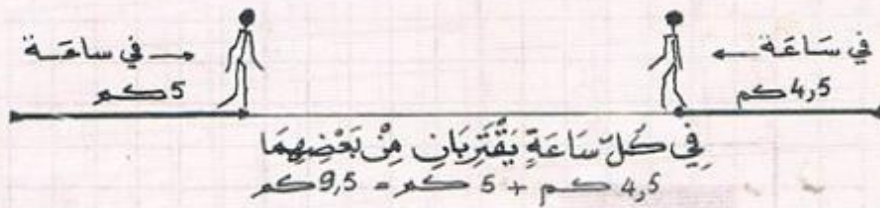 في سَاعَة ←
4,5 كم
في ساعَة →
5 كم
فِي كُلّ سَاعَةٍ يَقْتَرِبَانِ مِنْ بَعْضِهِمَا
4,5 كم + 5 كم = 9,5 كم